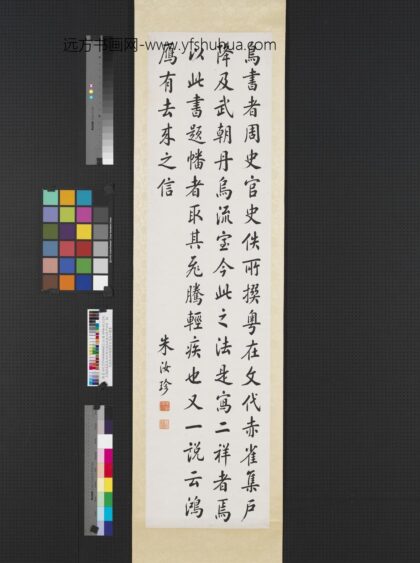 远方书画网-www.yfshuhua.com
鳥書者周史官史佚所撰粵在文代赤雀集戶
降及武朝丹烏流室今此之法是寫二祥者焉
以此書題幡者取其飛騰輕疾也又一說云鴻
鴈有去來之信
朱汝珍